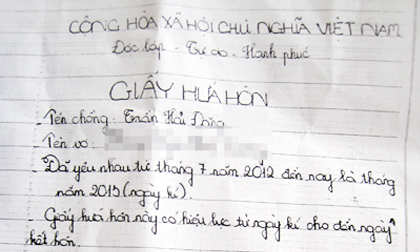 CỘNG HÒA XÃ HỘI CHỦ NGHĨA VIỆT NAM
Độc lập - Tự do - Hạnh phúc
GIẤY HỨA HÔN
- Tên chồng: Trần Hải Đăng
- Tên vợ:
- Đã yêu nhau từ tháng 7 năm 2012 đến nay là tháng
năm 2015 (ngày kí).
- Giấy hứa hôn này có hiệu lực từ ngày kí cho đến ngày
kết hôn.